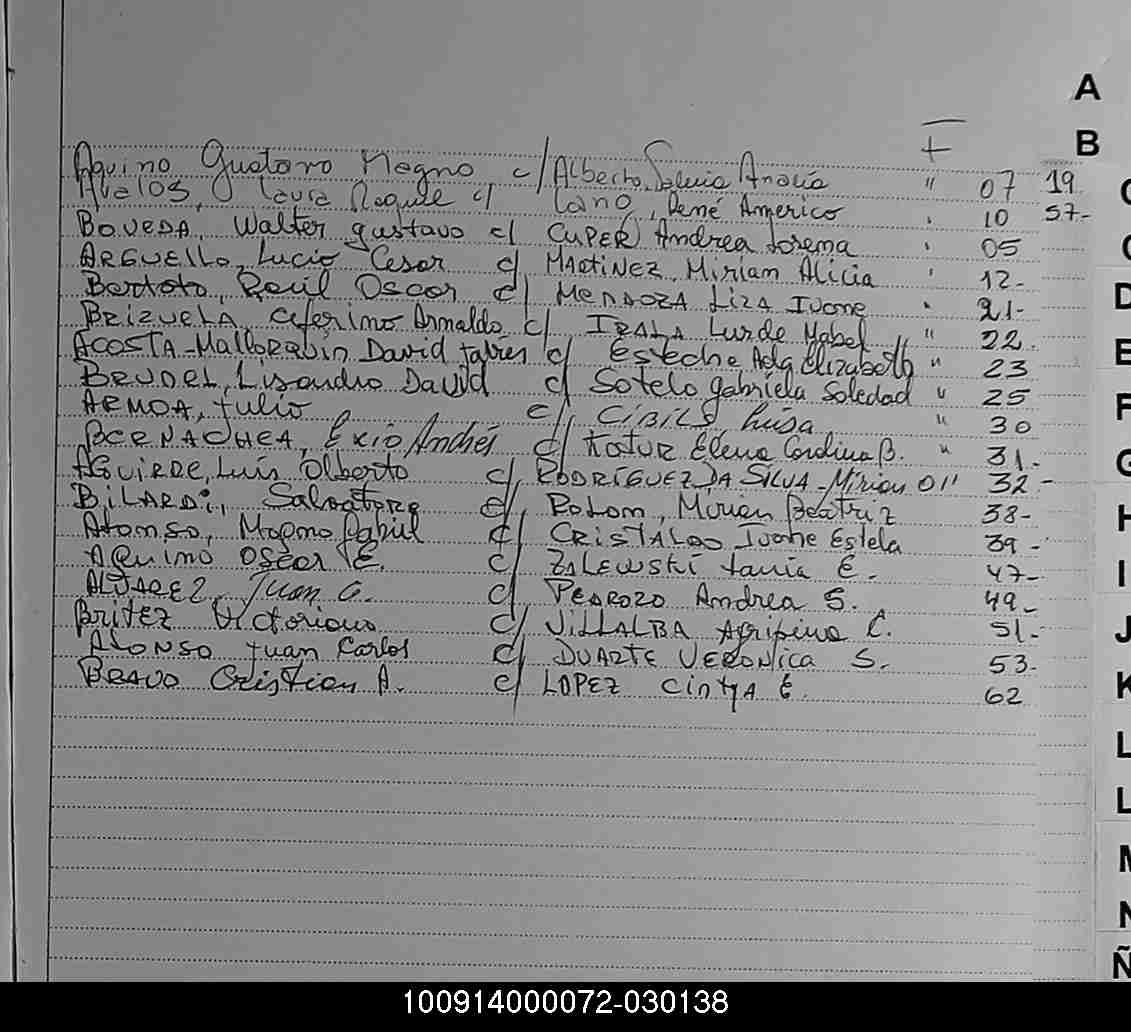 A
B
F
Aquino Gustavo Magno c/ Alberto, Silvia Analía " 07 19
Avalos, Laura Raquel c/ Cano, René Americo " 10 57-
BOVEDA, Walter Gustavo c/ CUPER Andrea Lorena " 05
ARGUELLO, Lucio Cesar c/ MARTINEZ Miriam Alicia " 12-
Bordato, Raúl Oscar c/ MENDOZA Liza Ivone " 21-
BRIZUELA Ceferino Arnaldo c/ IRALA Lurde Mabel " 22.
ACOSTA-Mallorquin David fabíen c/ Esteche Ada Elizabeth " 23
Brudel, Lisandro David c/ Sotelo Gabriela Soledad " 25
ARMOA, Julio c/ CIBILS, Luisa " 30
BERNACHEA, Exio Andrés c/ Elena B. " 31-
AGUIRRE, Luis Alberto c/ RODRÍGUEZ DA SILVA-Mirian O " 32-
BILARDI, Salvatore c/ Rolom, Mirian Beatriz 38-
Alonso, Magno c/ CRISTALDO Ivone Estela 39-
AQUINO OSCAR E. c/ ZALEWSKI Tania E. 47-
ALVAREZ Juan G. c/ PEDROZO Andrea S. 49-
BRITEZ Victoriano c/ VILLALBA Agripina C. 51-
ALONSO Juan Carlos c/ DUARTE VERONICA S. 53-
BRAVO Cristian A. c/ LOPEZ CINTYA E. 62
C
C
D
E
F
G
H
I
J
K
L
L
M
N
Ñ
100914000072-030138